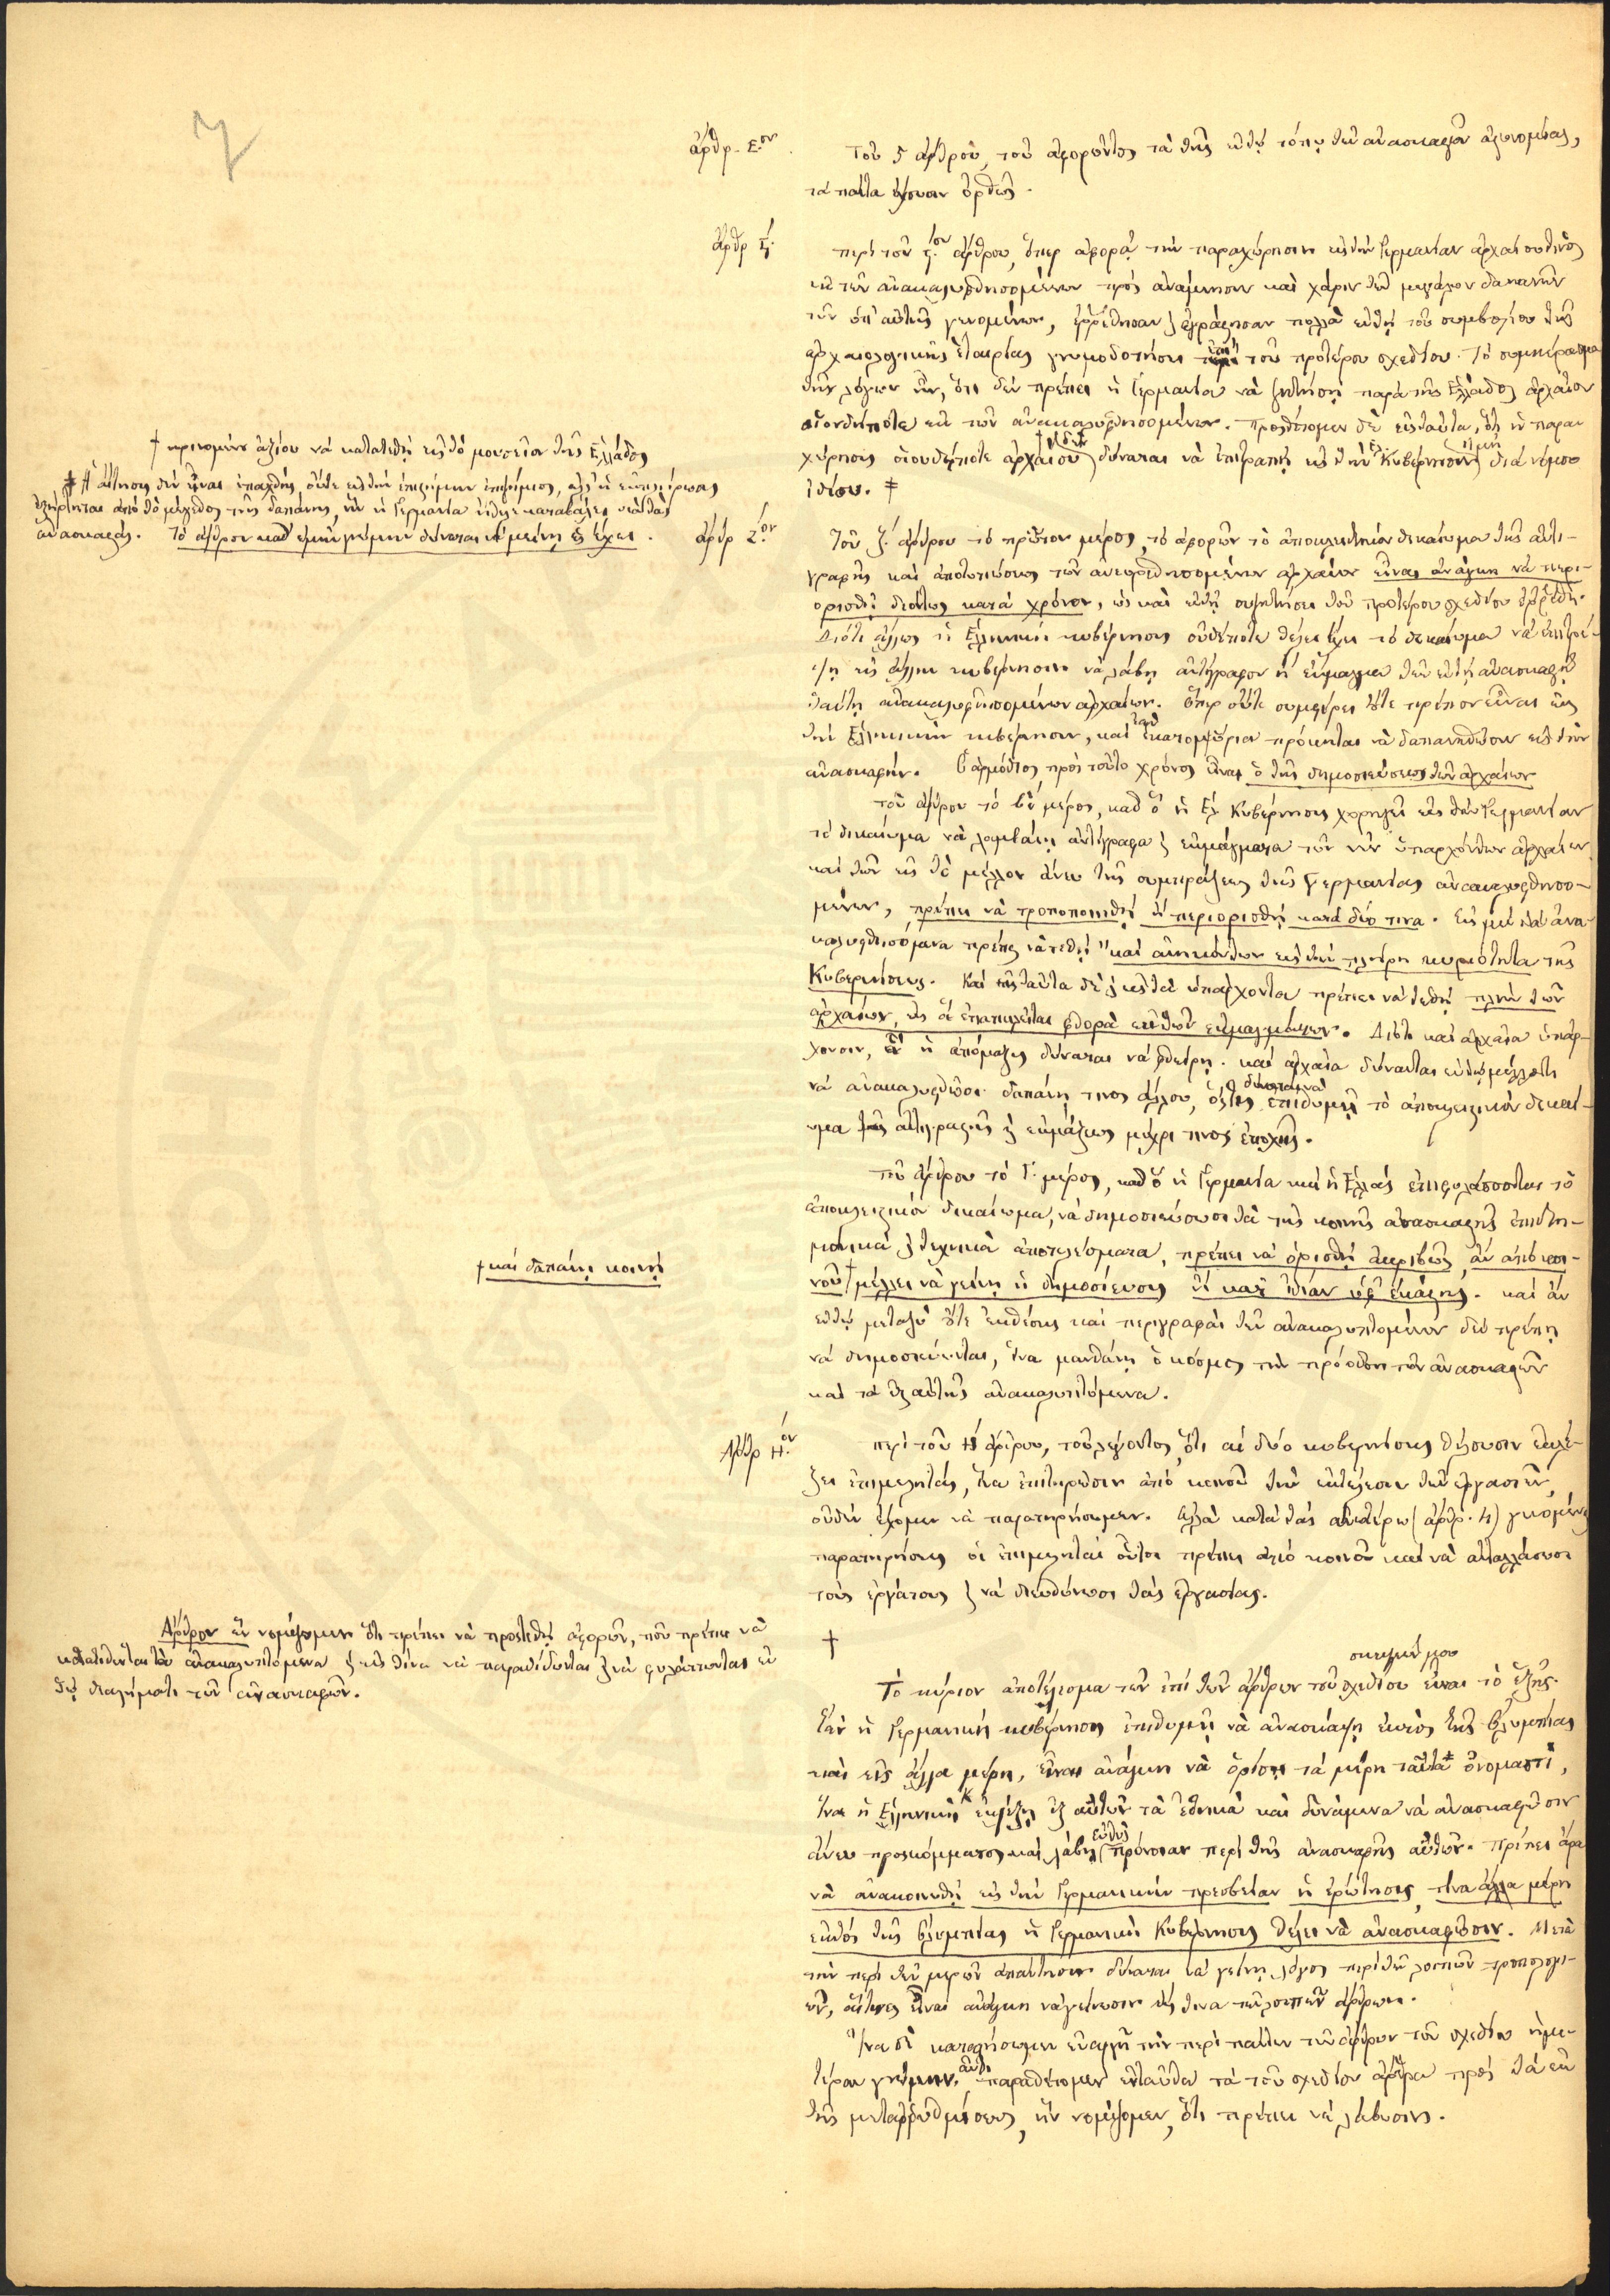 7
ἄρθρ. Ε.ον
Τοῦ 5 ἄρθρου, τοῦ ἀφορῶντος τὰ τῆς ἐν τῷ τόπῳ τῶν ἀνασκαφῶν ἀστυνομίας,
τὰ πάντα ἔχουσιν ὀρθῶς.
ἄρθρ ς΄.
περὶ τοῦ ς.ου ἄρθρου, ὅπερ ἀφορᾷ τὴν παραχώρησιν εἰς τὴν Γερμανίαν ἀρχαίου τινὸς
ἐκ τῶν ἀνακαλυφθησομένων πρὸς ἀνάμνησιν καὶ χάριν τῶν μεγάλων δαπανῶν
τῶν ὑπ' αὐτῆς γενομένων, ἐρρέθησαν ἐγράφησαν πολλὰ ἐν τῇ τοῦ συμβουλίου τῆς
ἀρχαιολογικῆς ἑταιρίας γνωμοδοτήσει ἐπὶ τοῦ προτέρου σχεδίου. Τὸ συμπέρασμα
τῶν λόγων ἦν, ὅτι δὲν πρέπει ἡ Γερμανία νὰ ζητήσῃ παρὰ τῆς Ἑλλάδος ἀρχαῖον
οἱονδήποτε ἐκ τῶν ἀνακαλυφθησομένων. Προσθέτομεν δὲ εἰς ταῦτα, ὅτι ἡ παρα-
χώρησις οἱουδήποτε ἀρχαίου † δὲν δύναται νὰ ἐπιτραπῇ εἰς τὴν Κυβέρνησιν ἡμῶν διὰ νόμου
ἰδίου. ‡
† κρινομένου ἀξίου νὰ κατατεθῇ εἰς τὸ μουσεῖον τῆς Ἑλλάδος
‡ Ἡ αἴτησις δὲν εἶναι ἐπαχθὴς οὔτε εἰς τὴν
ἐξήρτηται ἀπὸ τὸ μέγεθος τῆς δαπάνης, ἣν ἡ Γερμανία ἤθελε καταβάλει διὰ τὰς
ἀνασκαφάς. Τὸ ἄρθρον καθ' ἐμὴν γνώμην δύναται νὰ μείνῃ ὡς ἔχει.
ἄρθρ Ζ.ον
Τοῦ ζ. ἄρθρου τὸ πρῶτον μέρος, τὸ ἀφορῶν τὸ ἀποκλειστικὸν δικαίωμα τῆς ἀντι-
γραφῆς καὶ ἀποτυπώσεως τῶν ἀνευρεθησομένων ἀρχαίων εἶναι ἀνάγκη νὰ περι-
ορισθῇ δεόντως κατὰ χρόνον, ὡς καὶ ἐν τῇ συζητήσει τοῦ προτέρου σχεδίου ἐρρέθη.
Διότι ἄλλως ἡ Ἑλληνικὴ κυβέρνησις οὐδέποτε θέλει ἔχει τὸ δικαίωμα νὰ ἐπιτρέ-
ψῃ εἰς ἄλλην κυβέρνησιν νὰ λάβῃ ἀντίγραφον ἢ ἐκμαγεῖα τῶν ἐν τῇ ἀνασκαφῇ
ταύτῃ ἀνακαλυφθησομένων ἀρχαίων. Ὅπερ οὔτε συμφέρει οὔτε πρέπον εἶναι εἰς
τὴν Ἑλληνικὴν κυβέρνησιν, καὶ ἐὰν ἑκατομμύρια πρόκηται νὰ δαπανηθῶσιν εἰς τὴν
ἀνασκαφήν. Ὁ ἁρμόδιος πρὸς τοῦτο χρόνος εἶναι ὁ τῆς δημοσιεύσεως τῶν ἀρχαίων
τοῦ ἄρθρου τὸ β΄ μέρος, καθ' ὃ ἡ Ἑλ Κυβέρνησις χορηγεῖ εἰς τὴν Γερμανίαν
τὸ δικαίωμα νὰ λαμβάνῃ ἀντίγραφα ἐκμάγματα τῶν νῦν ὑπαρχόντων ἀρχαίων
καὶ τῶν εἰς τὸ μέλλον ἄνευ τῆς συμπράξεως τῆς Γερμανίας ἀνακαλυφθησο-
μένων, πρέπει νὰ τροποποιηθῇ ἢ περιορισθῇ κατὰ δύο τινα. Εἰς μὲν τὰ ἀνα-
καλυφθησόμενα πρέπει νὰ τεθῇ "καὶ ἀνηκόντων εἰς τὴν πλήρη κυριότητα τῆς
Κυβερνήσεως. Καὶ εἰς ταῦτα δὲ εἰς τὰ ὑπάρχοντα πρέπει νὰ τεθῇ πλὴν τῶν
ἀρχαίων, εἰς ἃ ἐπαπειλεῖται φθορὰ ἐκ τῶν ἐκμαγμάτων. Διότι καὶ ἀρχαῖα ὑπάρ-
χουσιν, ὧν ἡ ἀπόμαξις δύναται νὰ φθείρῃ. καὶ ἀρχαῖα δύνανται ἐν τῷ μέλλοντι
νὰ ἀνακαλυφθῶσι δαπάνῃ τινος ἄλλου, ὅστις δύναται νὰ ἐπιθυμῇ τὸ ἀποκλειστικὸν δικαί-
ωμα τῆς ἀντιγραφῆς ἐκμάξεως μέχρι τινος ἐποχῆς.
τοῦ ἄρθρου τὸ Γ΄ μέρος, καθ' ὃ ἡ Γερμανία καὶ ἡ Ἑλλὰς ἐπιφυλάσσονται τὸ
ἀποκλειστικὸν δικαίωμα, νὰ δημοσιεύσωσι τὰ τῆς κοινῆς ἀνασκαφῆς ἐπιστη-
μονικὰ τεχνικὰ ἀποτελέσματα, πρέπει νὰ ὁρισθῇ ἀκριβῶς, ἂν ἀπὸ κοι-
νοῦ † μέλλει νὰ γείνῃ ἡ δημοσίευσις ἢ κατ' ἰδίαν ὑφ' ἑκάστης. καὶ ἂν
ἐν τῷ μεταξὺ οὔτε ἐκθέσεις καὶ περιγραφαὶ τῶν ἀνακαλυπτομένων δὲν πρέπῃ
νὰ δημοσιεύωνται, ἵνα μανθάνῃ ὁ κόσμος τὴν πρόοδον τῶν ἀνασκαφῶν
καὶ τὰ ἐξ αὐτῆς ἀνακαλυπτόμενα.
† καὶ δαπάνῃ κοινῇ
Ἄρθρ Η.ον
περὶ τοῦ Η΄ ἄρθρου, τοῦ λέγοντος, ὅτι αἱ δύο κυβερνήσεις θέλουσιν ἐκλέ-
ξει ἐπιμελητάς, ἵνα ἐπιτηρῶσιν ἀπὸ κοινοῦ τὴν ἐκτέλεσιν τῶν ἐργασιῶν,
οὐδὲν ἔχομεν νὰ παρατηρήσωμεν. Ἀλλὰ κατὰ τὰς ἀνωτέρω (ἄρθρ. 4) γενομένας
παρατηρήσεις οἱ ἐπιμεληταὶ οὗτοι πρέπει ἀπὸ κοινοῦ καὶ νὰ ἀνταλλάσσωσι
τοὺς ἐργάτους νὰ διευθύνωσι τὰς ἐργασίας.
†
Ἄρθρον ἓν νομίζομεν ὅτι πρέπει νὰ προστεθῇ ἀφορῶν, ποῦ πρέπει νὰ
κατατίθενται τὰ ἀνακαλυπτόμενα εἰς τίνα νὰ παραδίδωνται νὰ φυλάττωνται ἐν
τῷ διαλήμματι τῶν ἀνασκαφῶν.
Τὸ κύριον ἀποτέλεσμα τῶν ἐπὶ τῶν ἄρθρων τοῦ σχεδίου σκέψεών μου εἶναι τὸ ἑξῆς.
Ἐὰν ἡ Γερμανικὴ κυβέρνησις ἐπιθυμῇ νὰ ἀνασκάψῃ ἐκτὸς τῆς Ὀλυμπίας
καὶ εἰς ἄλλα μέρη, εἶναι ἀνάγκη νὰ ὁρίσῃ τὰ μέρη ταῦτα ὀνομαστί,
ἵνα ἡ Ἑλληνικὴ Κ ἐκλέξῃ ἐξ αὐτῶν τὰ ἐθνικὰ καὶ δυνάμενα νὰ ἀνασκαφῶσιν
ἄνευ προσκόμματος καὶ λάβῃ εὐθὺς πρόνοιαν περὶ τῆς ἀνασκαφῆς αὐτῶν. Πρέπει ἄρα
νὰ ἀνακοινωθῇ εἰς τὴν Γερμανικὴν πρεσβείαν ἡ ἐρώτησις, τίνα ἄλλα μέρη
ἐκτὸς τῆς Ὀλυμπίας ἡ Γερμανικὴ Κυβέρνησις θέλει νὰ ἀνασκαφῶσιν. Μετὰ
τὴν περὶ τῶν μερῶν ἀπάντησιν δύναται νὰ γείνῃ λόγος περὶ τῶν λοιπῶν τροπολογι-
ῶν, αἵτινες εἶναι ἀνάγκη νὰ γείνωσιν εἰς τινα τῶν λοιπῶν ἄρθρων.
Ἵνα δὲ καταστήσωμεν ἐναργῆ τὴν περὶ πάντων τῶν ἄρθρων τοῦ σχεδίου ἡμε-
τέραν γνώμην, παραθέτομεν ἐνταῦθα τὰ τοῦ σχεδίου ἄρθρα πρὸς τὰ ἐκ
τῆς μεταρρυθμίσεως, ἣν νομίζομεν, ὅτι πρέπει νὰ λάβωσιν.